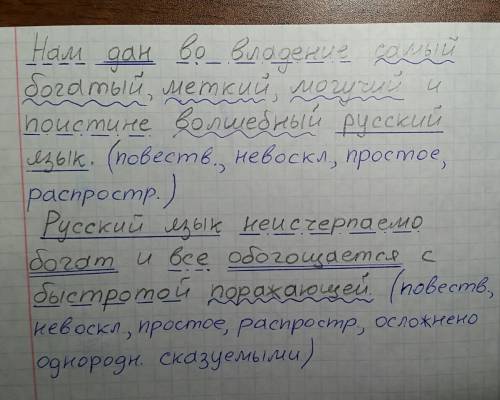 Нам дан во владение самый
богатый, меткий, могучий и
поистине волшебный русский
язык. (повеств., невоскл, простое,
распростр.)
Русский язык неисчерпаемо
богат и все обогощается с
быстротой поражающей. (повеств,
невоскл, простое, распростр., осложнено
однородн. сказуемыми)